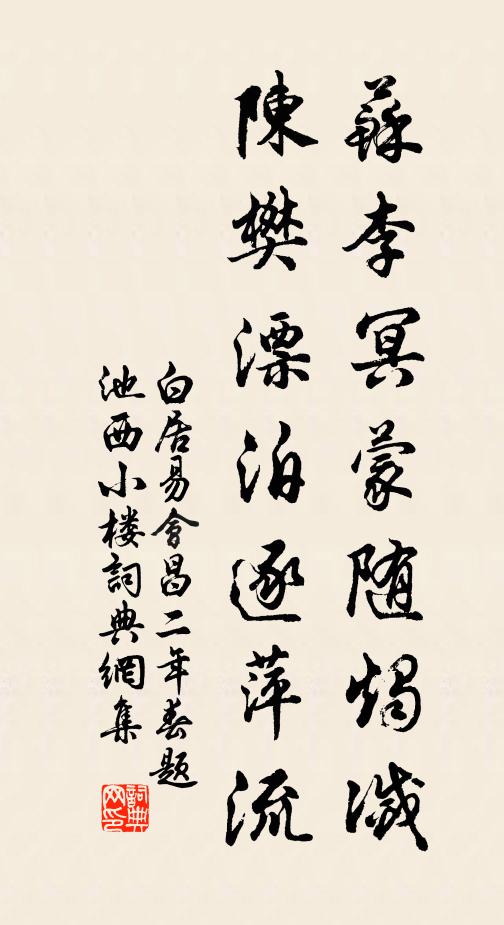 蘇李冥蒙随燭滅
陳樊漂泊逐萍流
白居易會昌二年春題
池西小楼詞典網集
詞典网印